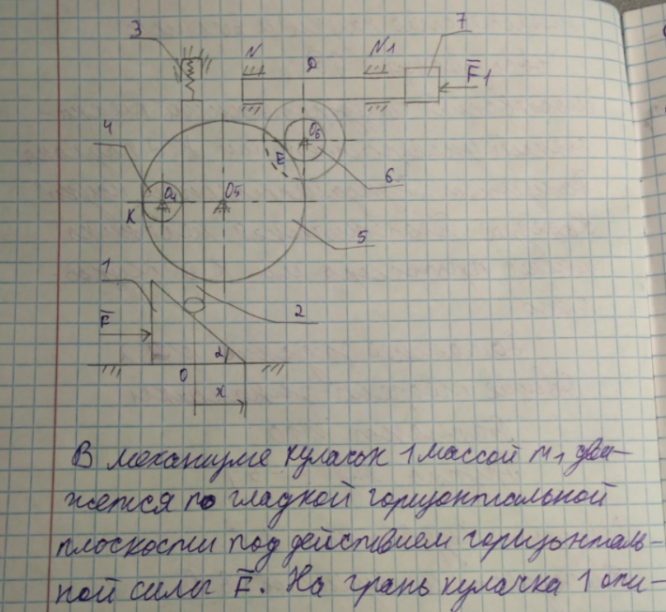 3 N D N1 7
F̅1
4 O6
E 6
K O4 O5
5
1 2
F̅
α
O x
В механизме кулачок 1 массой m1 дви-
жется по гладкой горизонтальной
плоскости под действием горизонталь-
ной силы F̅. На грань кулачка 1 опи-